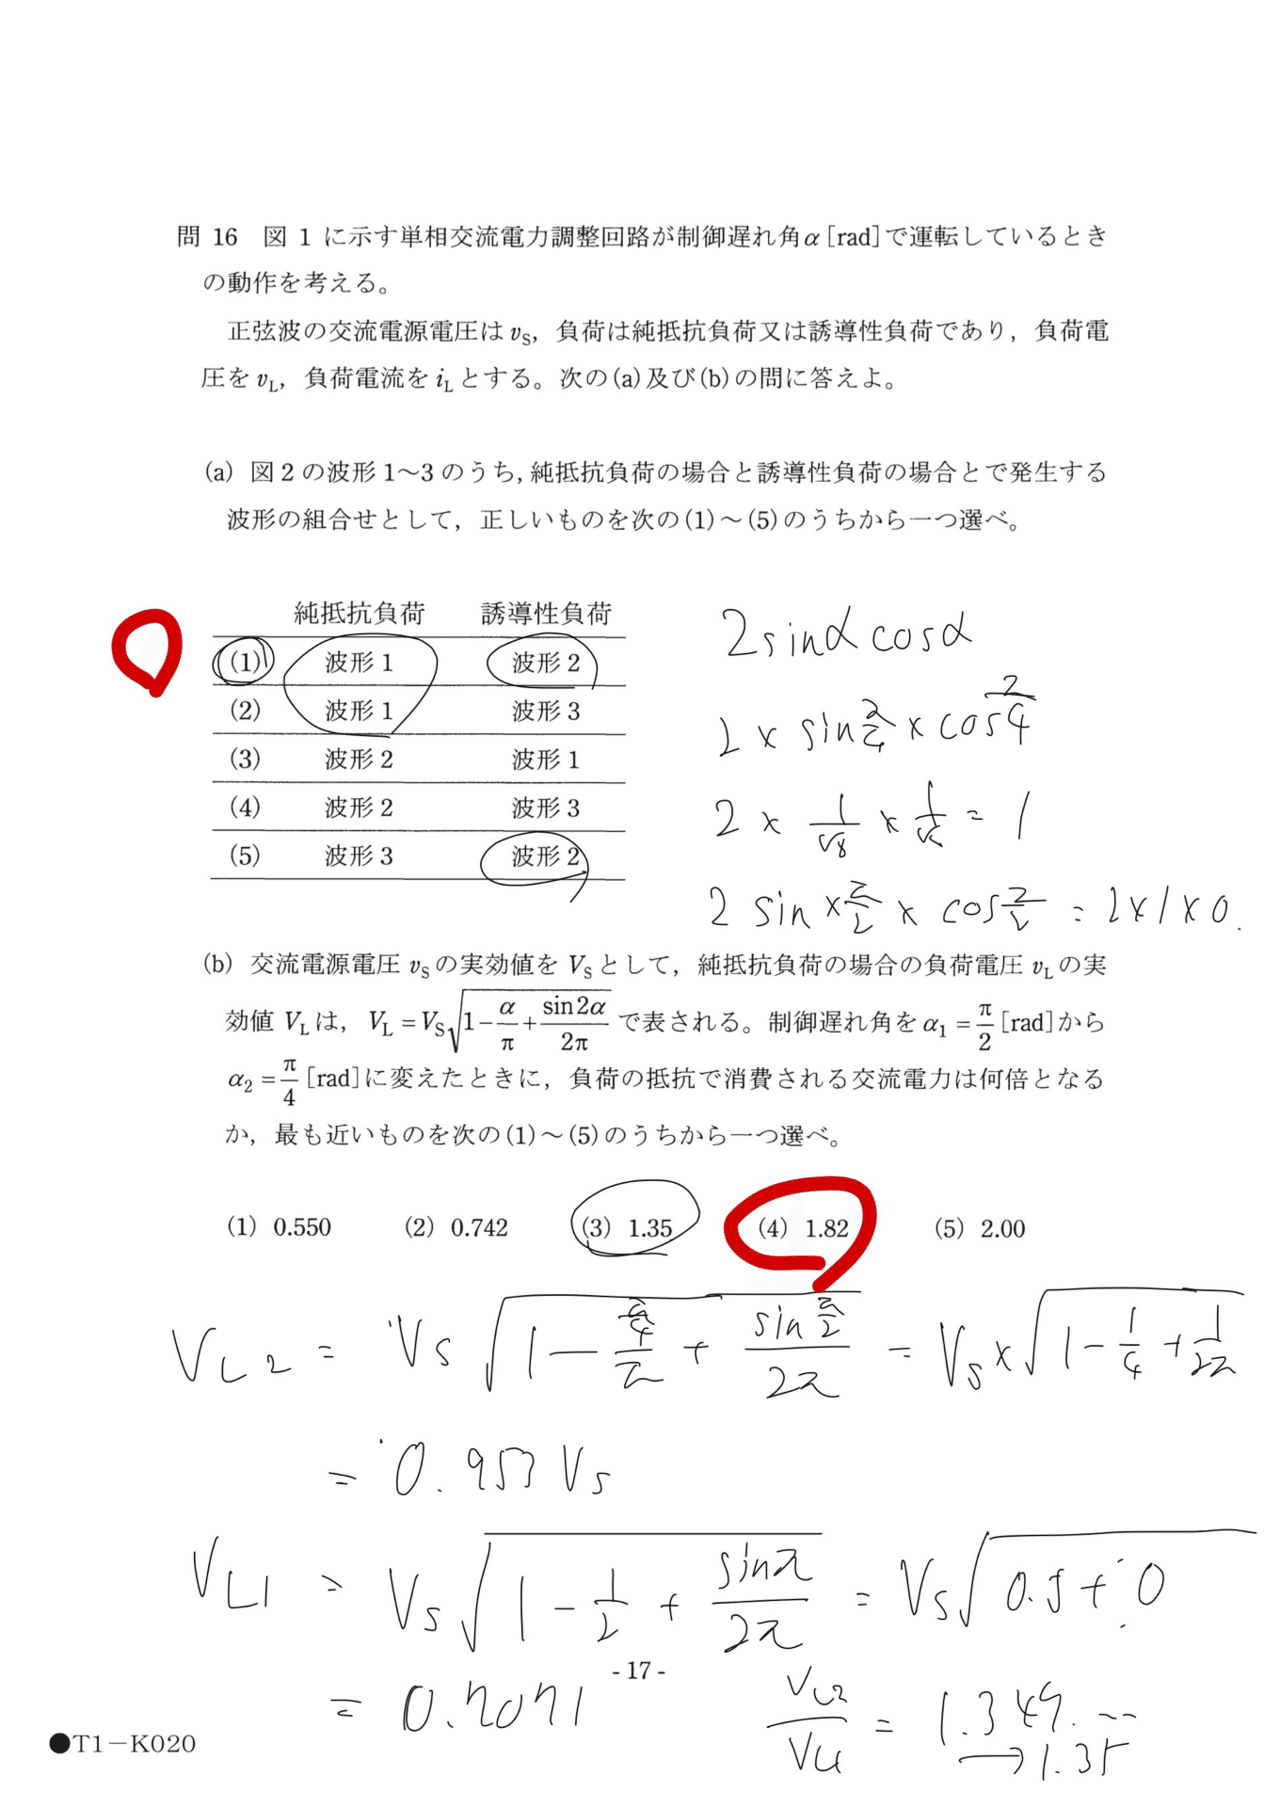 問 16 図 1 に示す単相交流電力調整回路が制御遅れ角α [rad]で運転しているとき
の動作を考える。
正弦波の交流電源電圧は vS，負荷は純抵抗負荷又は誘導性負荷であり，負荷電
圧を vL，負荷電流を iL とする。次の(a)及び(b)の問に答えよ。
(a) 図 2 の波形 1～3 のうち，純抵抗負荷の場合と誘導性負荷の場合とで発生する
波形の組合せとして，正しいものを次の(1)～(5)のうちから一つ選べ。
純抵抗負荷 誘導性負荷
(1) 波形 1 波形 2
(2) 波形 1 波形 3
(3) 波形 2 波形 1
(4) 波形 2 波形 3
(5) 波形 3 波形 2
2sinα cosα
2 × sin π/4 × cos π/4
2 × 1/√8 × 1/√2 = 1
2 sin × π/2 × cos π/2 = 2×1×0.
(b) 交流電源電圧 vS の実効値を VS として，純抵抗負荷の場合の負荷電圧 vL の実
効値 VL は，VL = VS√(1 − α/π + sin2α/2π) で表される。制御遅れ角を α1 = π/2 [rad]から
α2 = π/4 [rad]に変えたときに，負荷の抵抗で消費される交流電力は何倍となる
か，最も近いものを次の(1)～(5)のうちから一つ選べ。
(1) 0.550 (2) 0.742 (3) 1.35 (4) 1.82 (5) 2.00
VL2 = VS √(1 − π/4/π + sin π/2/2π) = VS × √(1 − 1/4 + 1/2π)
= 0.953 VS
VL1 = VS √(1 − 1/2 + sinπ/2π) = VS √(0.5 + 0)
= 0.7071
VL2/VL1 = 1.349. …
→ 1.35
- 17 -
●T1－K020